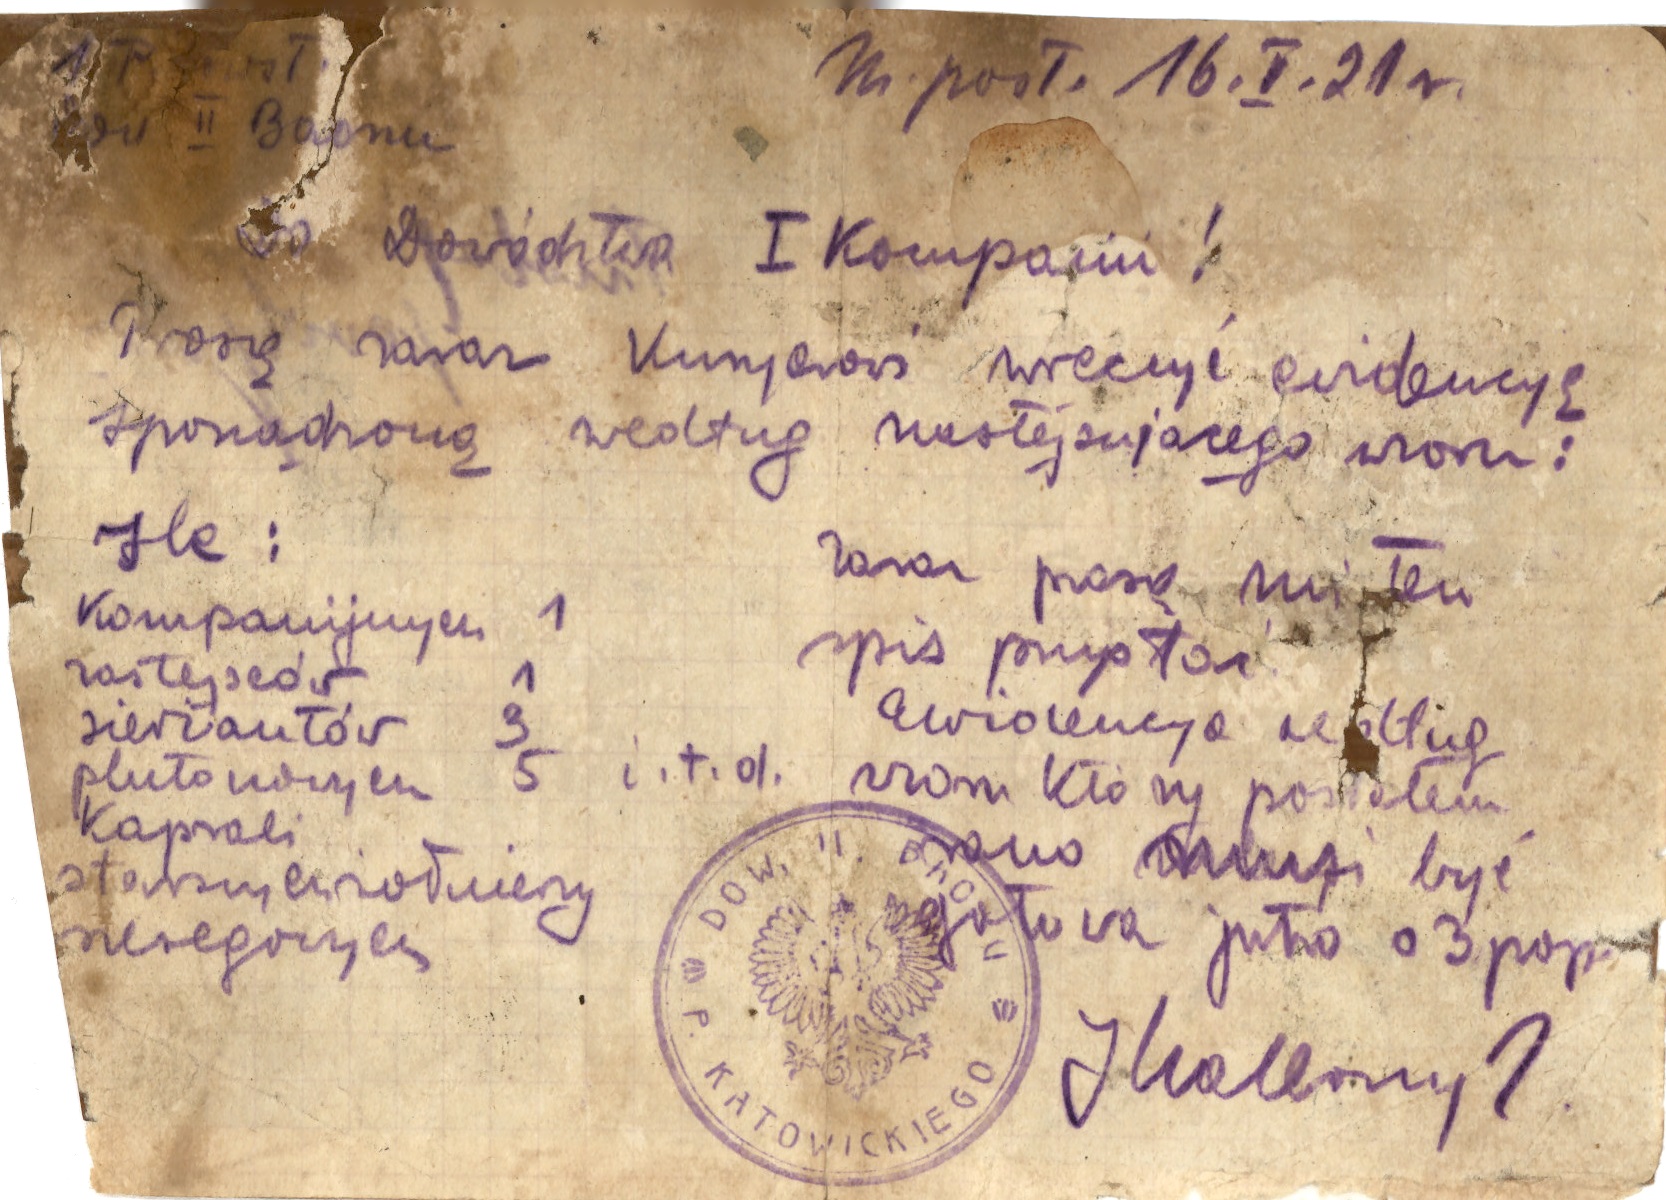 M. post. 16.V.21 r.
Dow II Baonu
Do Dowódctwa I Kompanii!
Proszę zaraz Kuryerowi wręczyć ewidencyę
sporządzoną według nastejpującego wzoru:
Ile:
Kompanijnych 1
zastejpców 1
sierżantów 3
plutonowych 5 i.t.d.
Kaprali
starszych żołnierzy
szeregowych
Zaraz proszę mi ten
spis przysłać.
Ewidencya według
wzoru który posłałem
rano musi być
gotowa jutro o 3 pop.
DOW. II. BAONU
P. KATOWICKIEGO